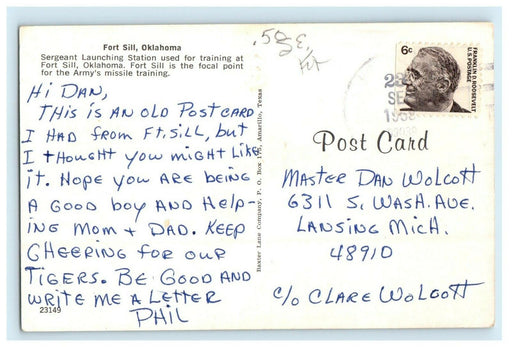 Fort Sill, Oklahoma
Sergeant Launching Station used for training at
Fort Sill, Oklahoma. Fort Sill is the focal point
for the Army's missile training.
Hi DAN,
THis is AN OLD POSTCARD
I HAD from Ft. Sill, but
I tHougHt you migHt Like
it. Hope you ARE bEiNg
A good boy AND HELP-
iNg Mom + DAD. KEEP
CHEERiNg foR OUR
TigERS. BE Good AND
WRitE ME A LEttER
PHiL
23149
Baxter Lane Company, P. O. Box 175, Amarillo, Texas
6¢
FRANKLIN D. ROOSEVELT
U.S. POSTAGE
Post Card
MAStER DAN WoLcott
6311 S. WASH. AVE.
LANSiNg MicH.
48910
c/o CLARE WoLcott